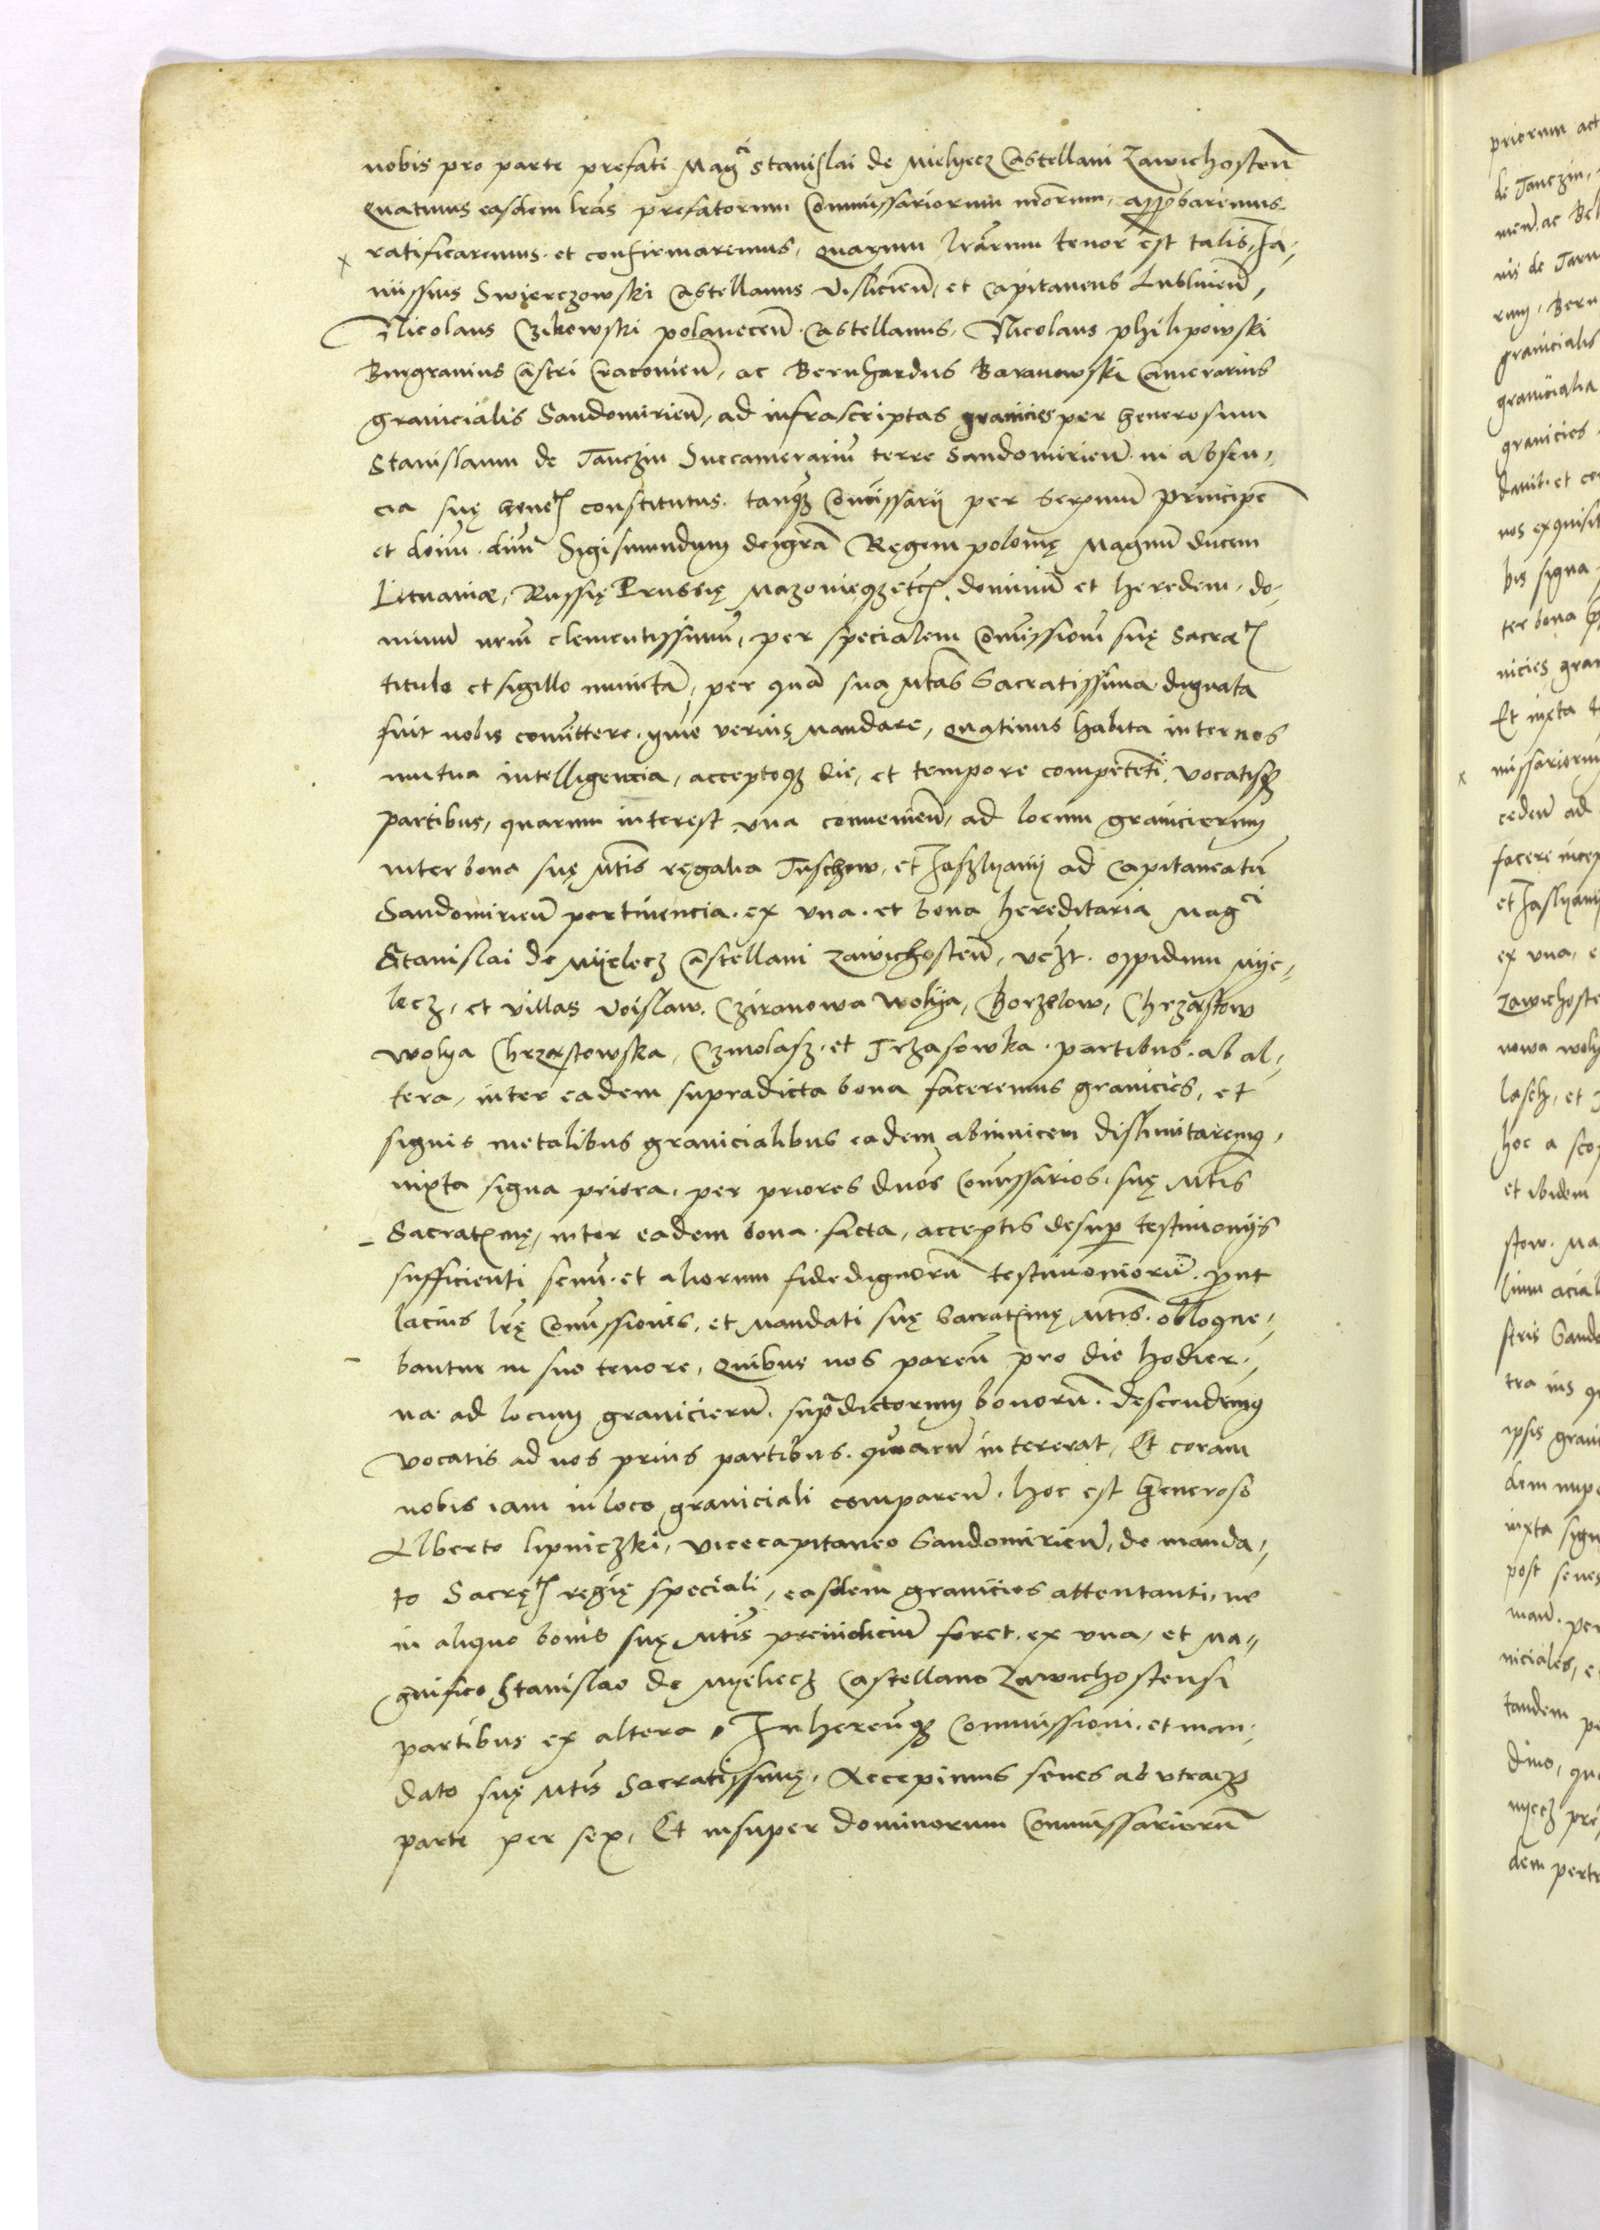 nobis pro parte prefati Magci Stanislai de Mielyecz Castellani Zawichosteñ
Quatinus easdem lras prefatorum Comissariorum nrorum, approbaremus
ratificaremus et confirmaremus, quarum lrarum tenor est talis, Ja-
nussius Swierczowski Castellanus Vislicieñ, et Capitaneus Lubliñeñ,
Nicolaus Czikowski polaneceñ Castellanus, Nicolaus philipowski
Burgravius Castri Cracovieñ, ac Bernhardus Baranowski Camerarius
granicialis Sandomirieñ, ad infrascriptas granicies per Generosum
Stanislaum de Tanczin Succamerarium terre Sandomirieñ in absen-
cia suę constitutus, tanq Comissarij per Principē
et dominum, dnm Sigismundum dei gra Regem polonię Magnū ducem
Lituaniæ, Russię Prussię Mazovieqz etc dominū et heredem, do-
minum nrm clementissimū, per specialem Comissionem suę Sacræ
titulo et sigillo munitā, per quā sua Mtas Sacratissima dignata
fuit nobis comittere, ymo verius mandare, Quatinus habita inter nos
mutua intelligencia, acceptoqz die, et tempore competēti, vocatisqz
partibus, quarum interest una convenieñ, ad locum granicierum
inter bona suę Mtis regalia Tuschow, et Jaszlyany ad Capitaneatū
Sandomirieñ pertinencia, ex una, et bona hereditaria Magci
Stanislai de Myelecz Castellani Zawichosteñ, vczt oppidum Mye-
lecz, et villas Voislaw, Cziranowa wolya, Borzelow, Chrzastow
wolya Chrzastowska, Czmolasz, et Trzasowka, partibus, ab al-
tera, inter eadem supradicta bona faceremus granicies, et
signis metalibus granicialibus eadem abinvicem dislimitaremus,
iuxta signa priora, per priores duos Comissarios suę Mtis
Sacratimę, inter eadem bona facta, acceptis desuper testimonijs
sufficienti senū, et aliorum fidedignorū testimoniorū, prout
lacius lrę Comissionis, et Mandati suę Sacratimę Mtis, obloque-
bantur in suo tenore, quibus nos pareñ pro die hodier-
næ ad locum granicierū, supradictorum bonorū, descendimus
vocatis ad nos prius partibus, quarū intererat, Et coram
nobis iam in loco graniciali compareñ, hoc est Generoso
Alberto lipniczki, vicecapitaneo Sandomirieñ, de manda-
to Sacrę regię speciali, easdem granicies attentanti, ne
in aliquo bonis suę Mtis preiudicium foret, ex una, et Ma-
gnifico Stanislao de Myeliecz Castellano Zawichostensi
partibus ex altera, Inhereñqz Commissioni, et man-
dato suę Mtis Sacratissimę, Accepimus senes ab utraqz
parte per sex, Et insuper dominorum Commissariorū